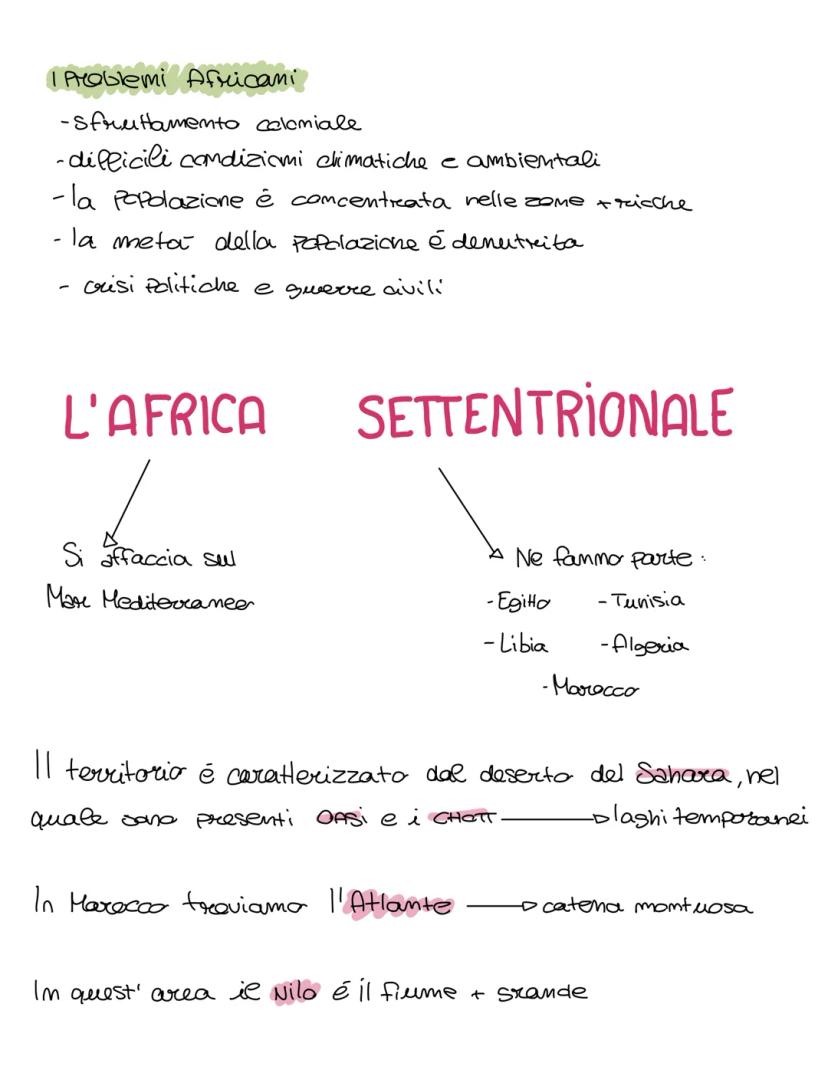 I Problemi Africani
- sfruttamento coloniale
- difficili condizioni climatiche e ambientali
- la popolazione è concentrata nelle zone + ricche
- la metà della popolazione è denutrita
- crisi politiche e guerre civili
L'AFRICA SETTENTRIONALE
Si affaccia sul
Mare Mediterraneo
Ne fanno parte:
- Egitto - Tunisia
- Libia - Algeria
- Marocco
Il territorio è caratterizzato dal deserto del Sahara, nel
quale sono presenti OASi e i CHOTT laghi temporanei
In Marocco troviamo l'Atlante catena montuosa
In quest'area il Nilo è il fiume + grande